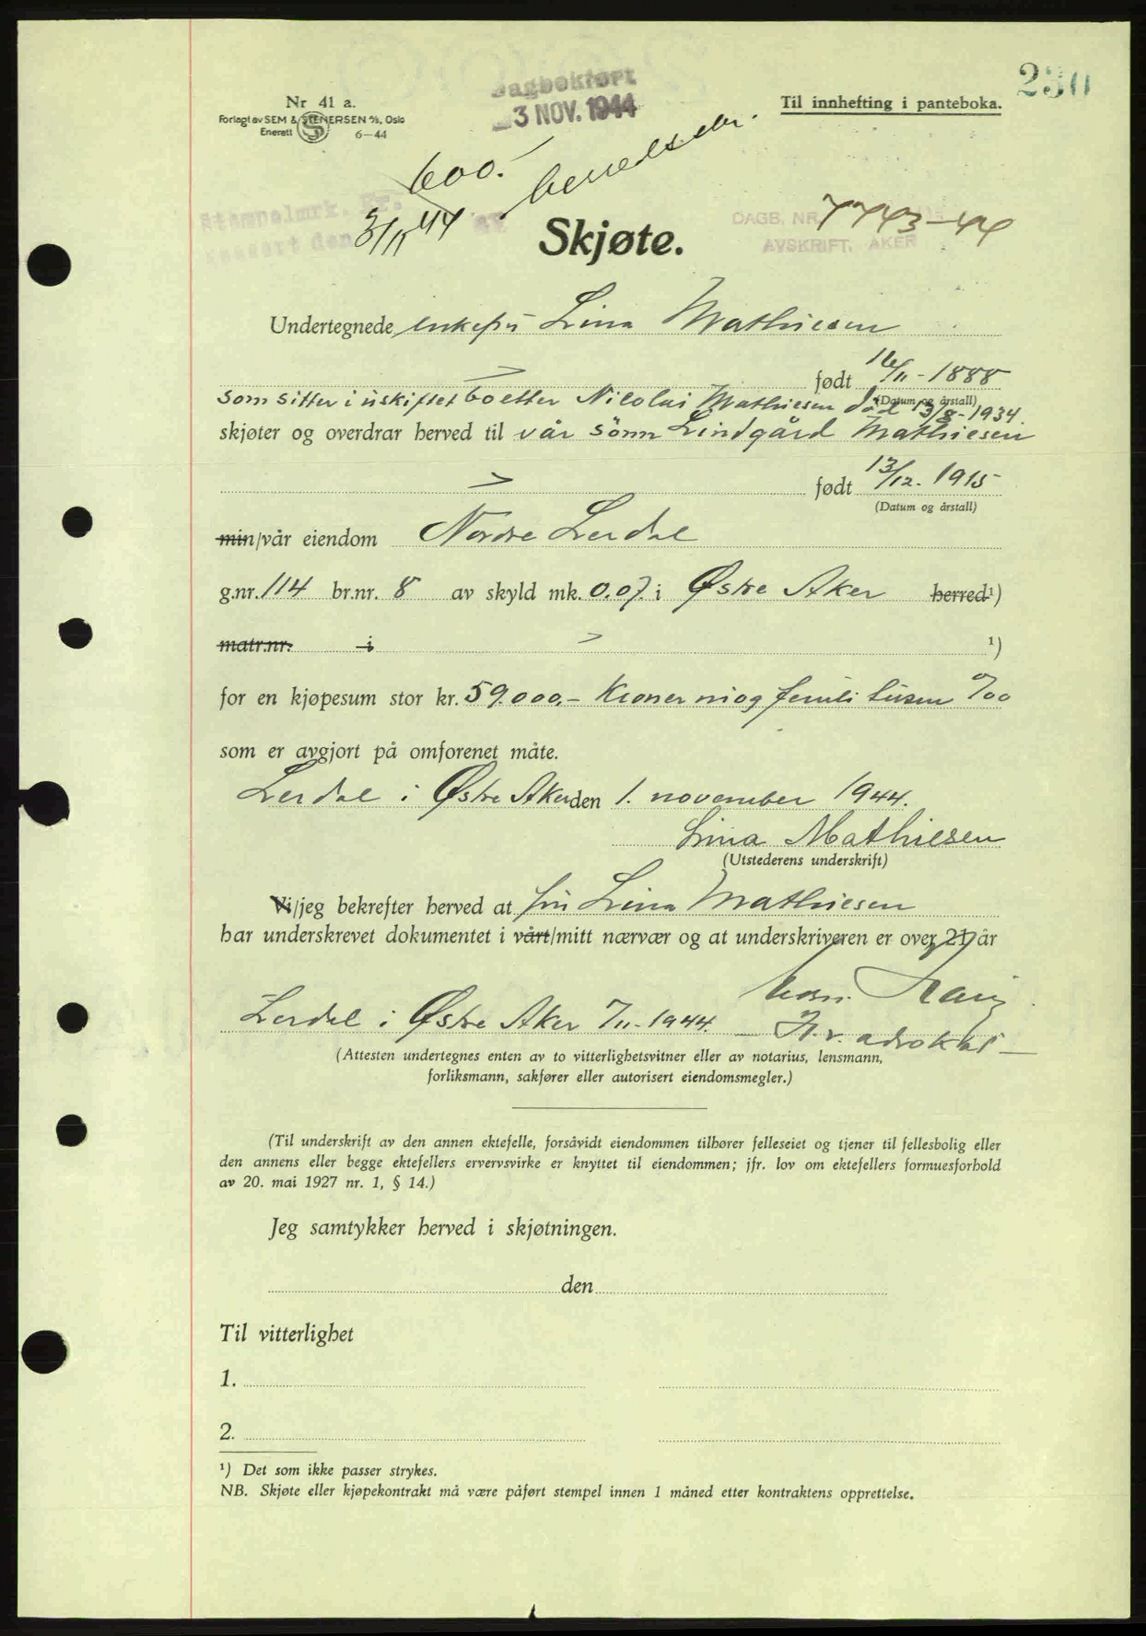 230
Dagbokført
3 NOV. 1944
Nr 41 a.
Til innhefting i panteboka.
Forlagt av SEM & STENERSEN A/S, Oslo
Enerett 6-44
600.-
Stempelmrk. Kr.
3/11 44
DAGB. NR. 7743-44
AVSKRIFT, AKER
Skjøte.
Undertegnede enkefru Lina Mathiesen
født 16/11-1888
(Datum og årstall)
som sitter i uskiftet bo etter Nicolai Mathiesen død 13/8-1934.
skjøter og overdrar herved til vår sönn Lindgård Mathiesen
født 13/12-1915
(Datum og årstall)
min/vår eiendom Nordre Lerdal
g.nr. 114 br.nr. 8 av skyld mk. 0.07. i Østre Aker herred¹)
matr.nr. i ¹)
for en kjøpesum stor kr. 59.000,- Kroner niogfemti tusen 0/00
som er avgjort på omforenet måte.
Lerdal i Østre Aker den 1. november 1944.
Lina Mathiesen
(Utstederens underskrift)
Vi/jeg bekrefter herved at fru Lina Mathiesen
har underskrevet dokumentet i vårt/mitt nærvær og at underskriveren er over 21 år
Lerdal i Østre Aker 7/11-1944. H.r. advokat
(Attesten undertegnes enten av to vitterlighetsvitner eller av notarius, lensmann,
forliksmann, sakfører eller autorisert eiendomsmegler.)
(Til underskrift av den annen ektefelle, forsåvidt eiendommen tilhører felleseiet og tjener til fellesbolig eller
den annens eller begge ektefellers ervervsvirke er knyttet til eiendommen; jfr. lov om ektefellers formuesforhold
av 20. mai 1927 nr. 1, § 14.)
Jeg samtykker herved i skjøtningen.
den
Til vitterlighet
1.
2.
¹) Det som ikke passer strykes.
NB. Skjøte eller kjøpekontrakt må være påført stempel innen 1 måned etter kontraktens opprettelse.